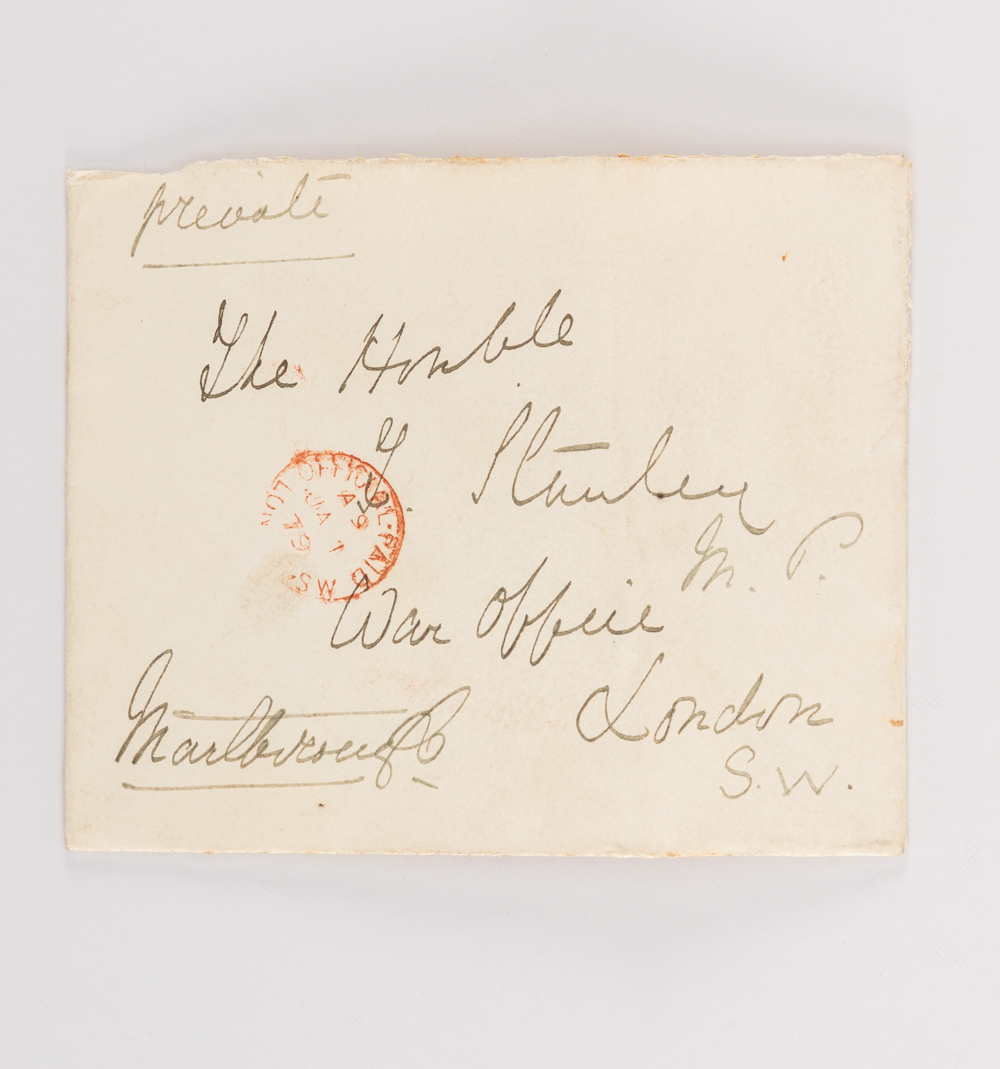 private
The Honble
F. Stanley
M. P.
War Office
London
S.W.
Marlborough
LON
NOT OFFICIAL-PAID
A 9
JA 1
79
SW